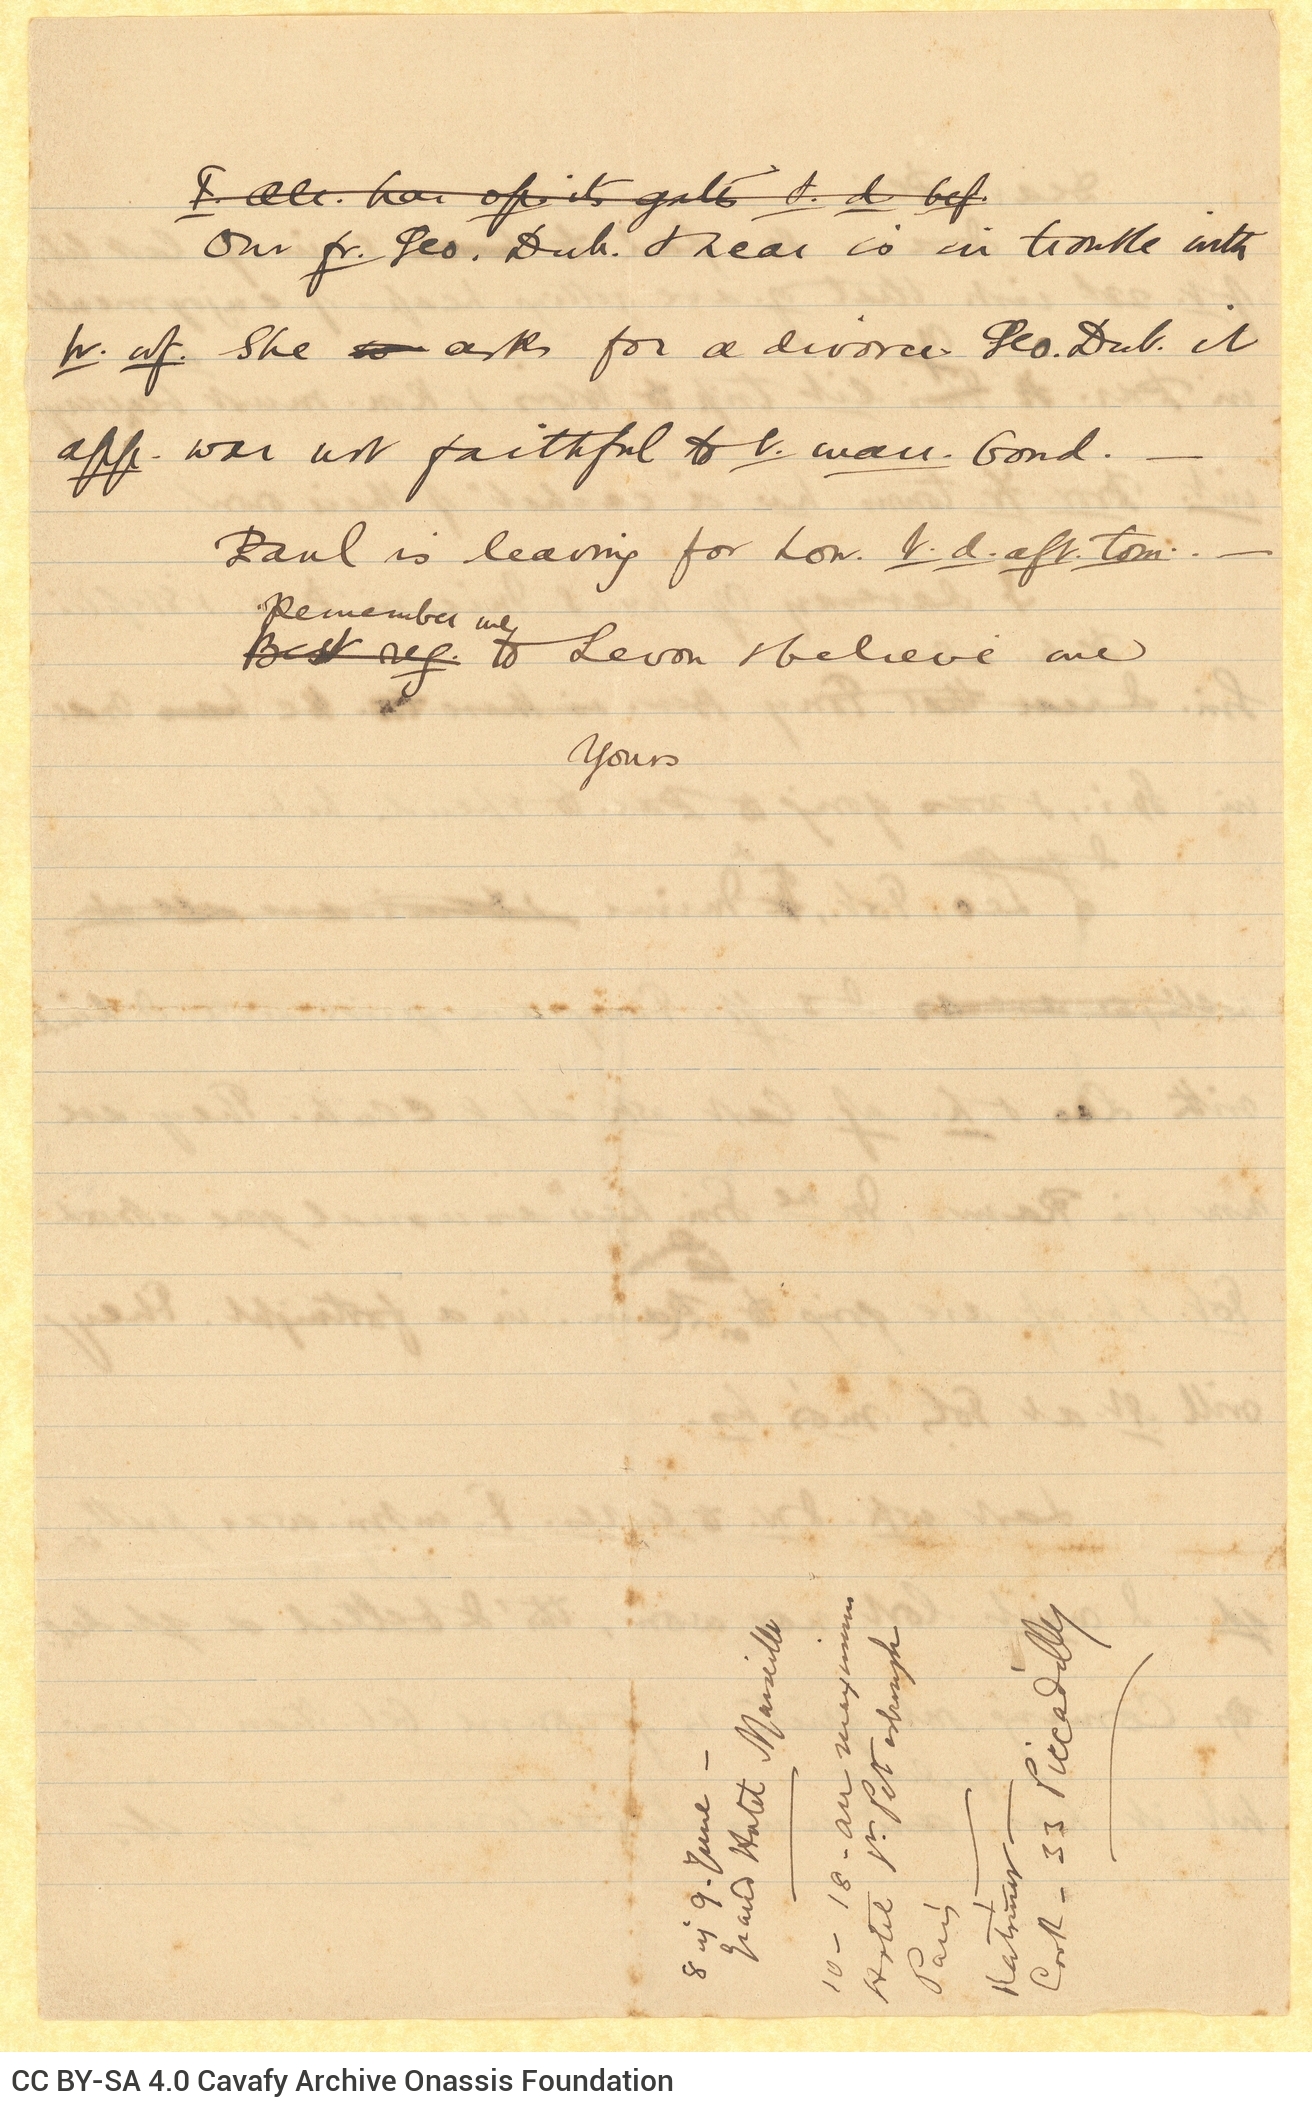 T. Alh. has op. its gates t. d. bef.
Our fr. Geo. Dub. I hear is in trouble with
h. wf. She so asks for a divorce. Geo. Dub. it
app. was not faithful to t. marr. bond. —
Paul is leaving for Lon. t. d. aft. tom. . —
Remember me
Best reg. to Levon & believe me
Yours
8 ή 9 - June —
Grand Hotel Marseille
10 - 18 - au maximum
Hotel St Petersburgh
Paris
Κατόπιν
Cook - 33 Piccadilly
CC BY-SA 4.0 Cavafy Archive Onassis Foundation